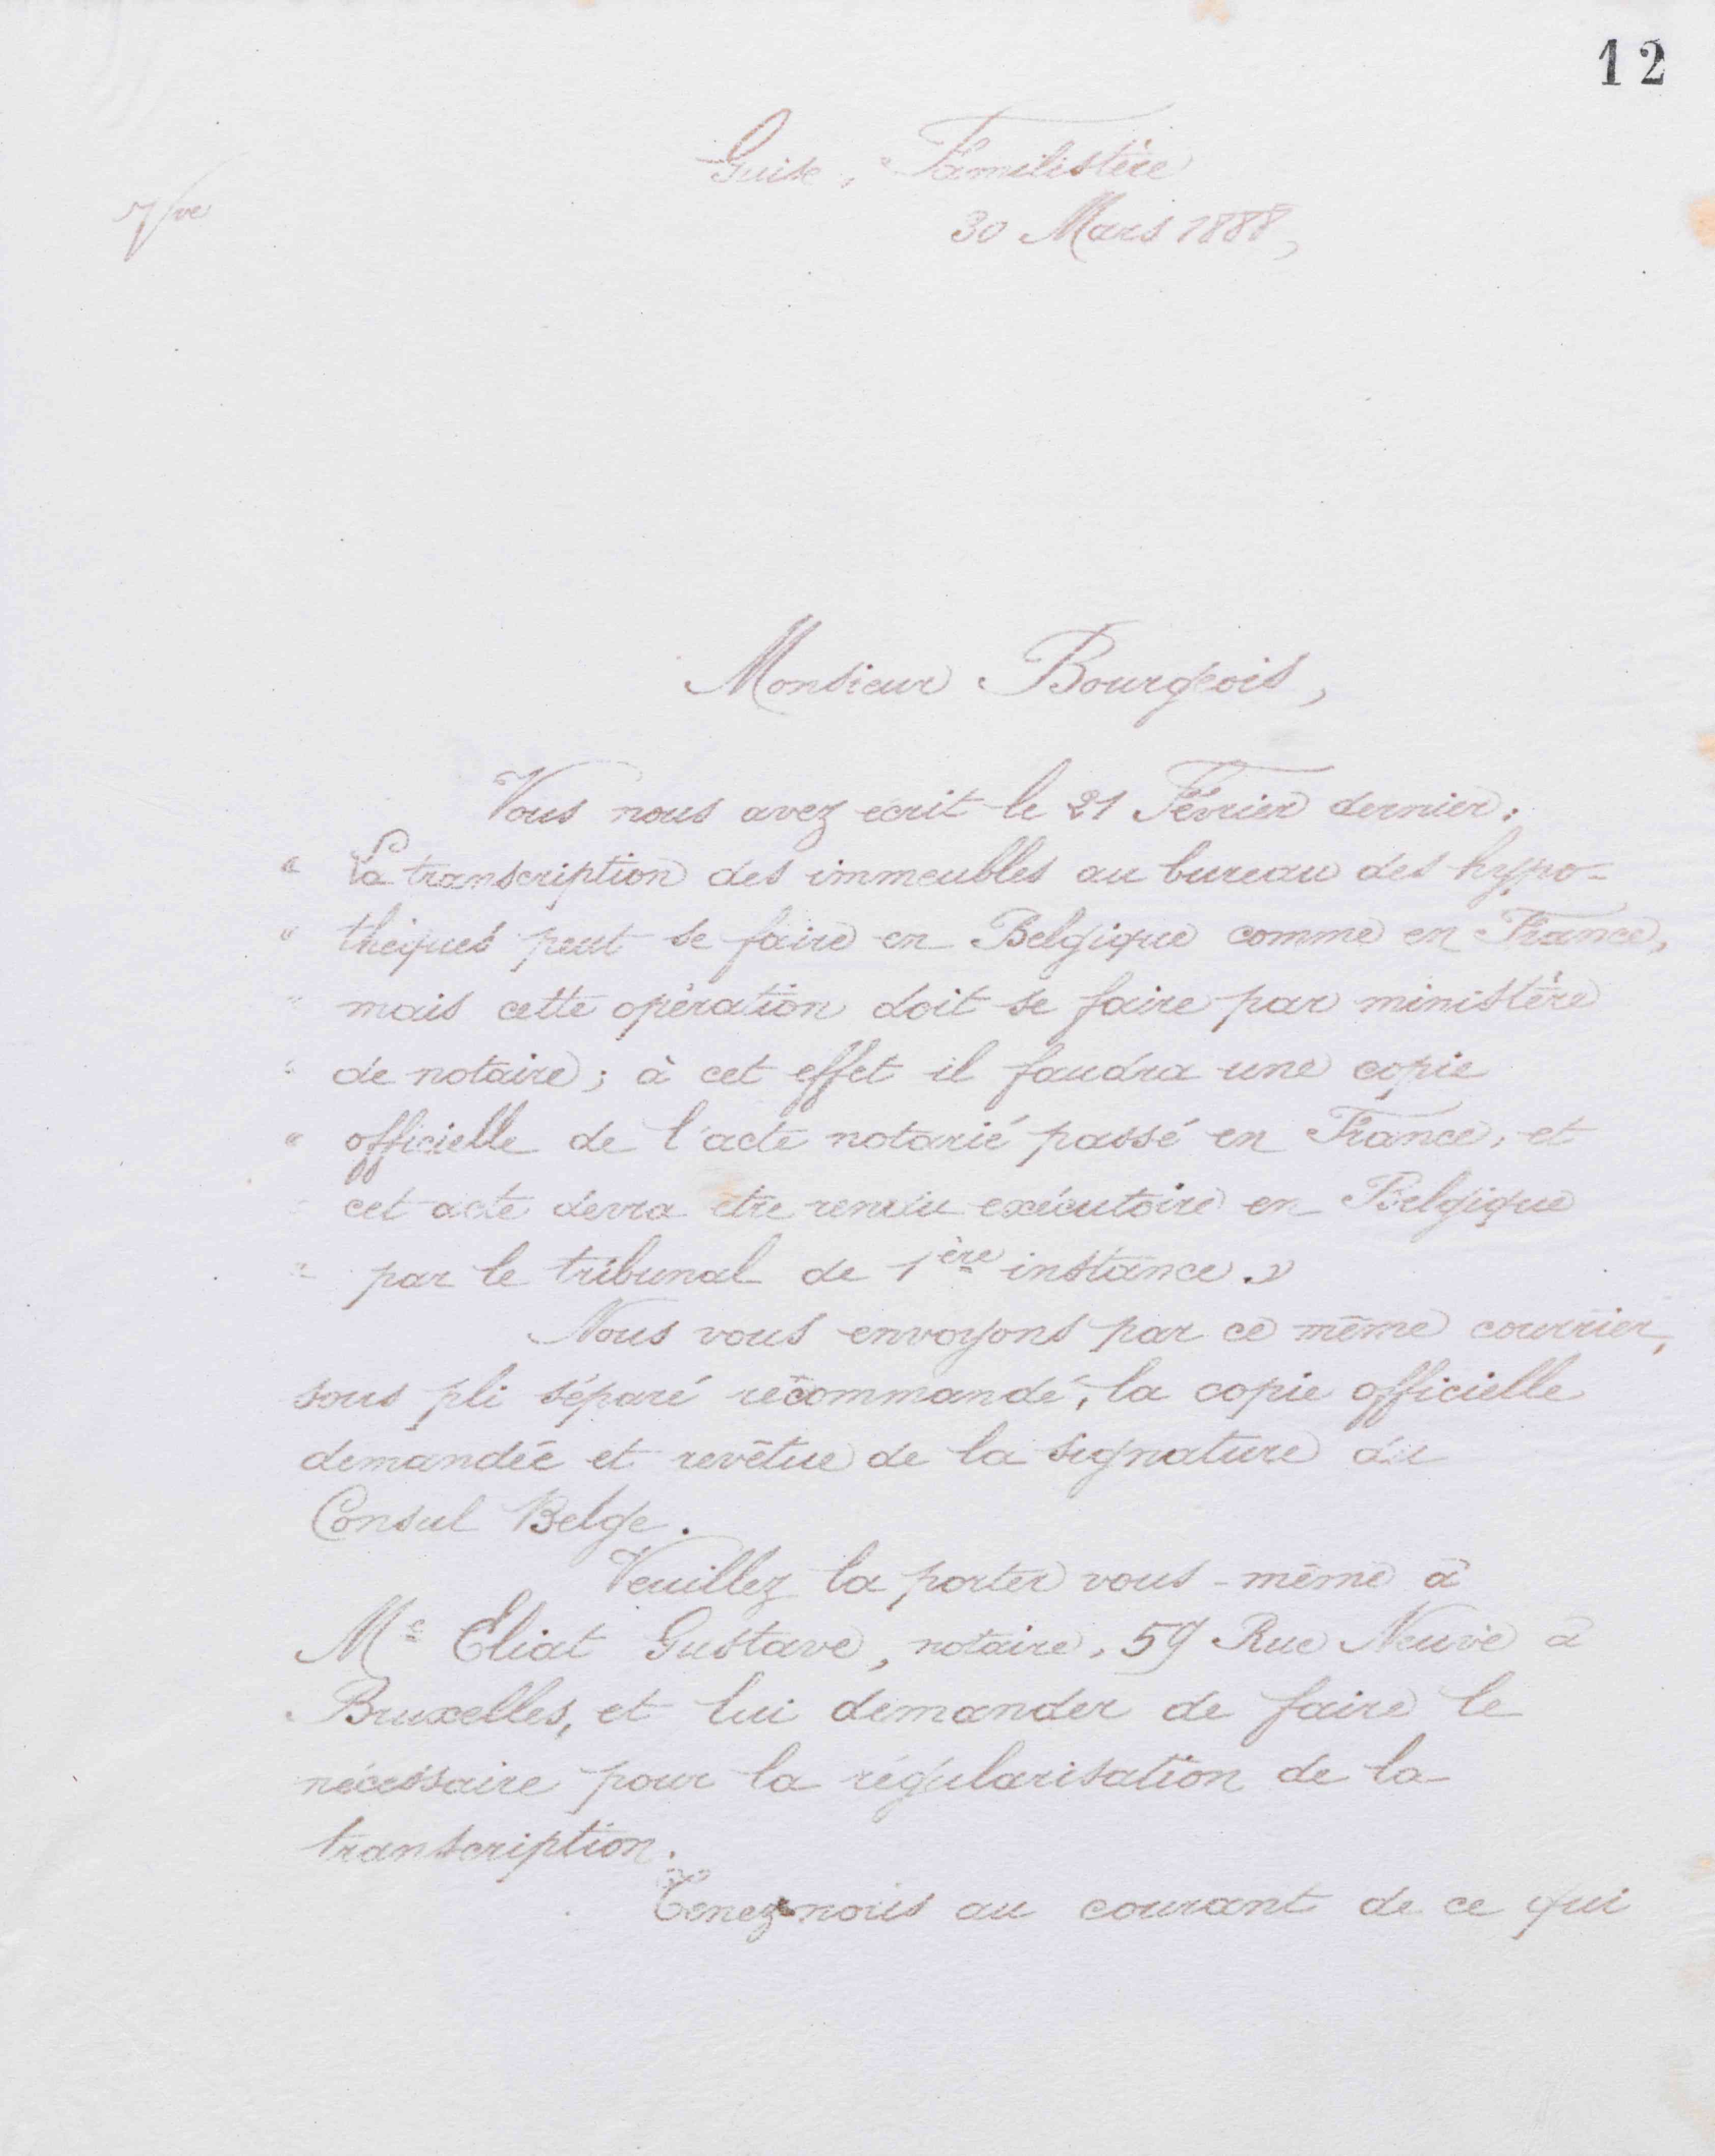 12
Guise, Familistère
30 Mars 1888,
Monsieur Bourgeois,
Vous nous avez écrit le 21 Février dernier:
" La transcription des immeubles au bureau des hypo-
" thèques peut se faire en Belgique comme en France,
" mais cette opération doit se faire par ministère
" de notaire; à cet effet il faudra une copie
" officielle de l'acte notarié passé en France, et
" cet acte devra être rendu exécutoire en Belgique
" par le tribunal de 1ère instance. »
Nous vous envoyons par ce même courrier,
sous pli séparé recommandé, la copie officielle
demandée et revêtue de la signature du
Consul Belge.
Veuillez la porter vous-même à
Me Eliat Gustave, notaire, 59 Rue Neuve à
Bruxelles, et lui demander de faire le
nécessaire pour la régularisation de la
transcription.
Tenez-nous au courant de ce qui